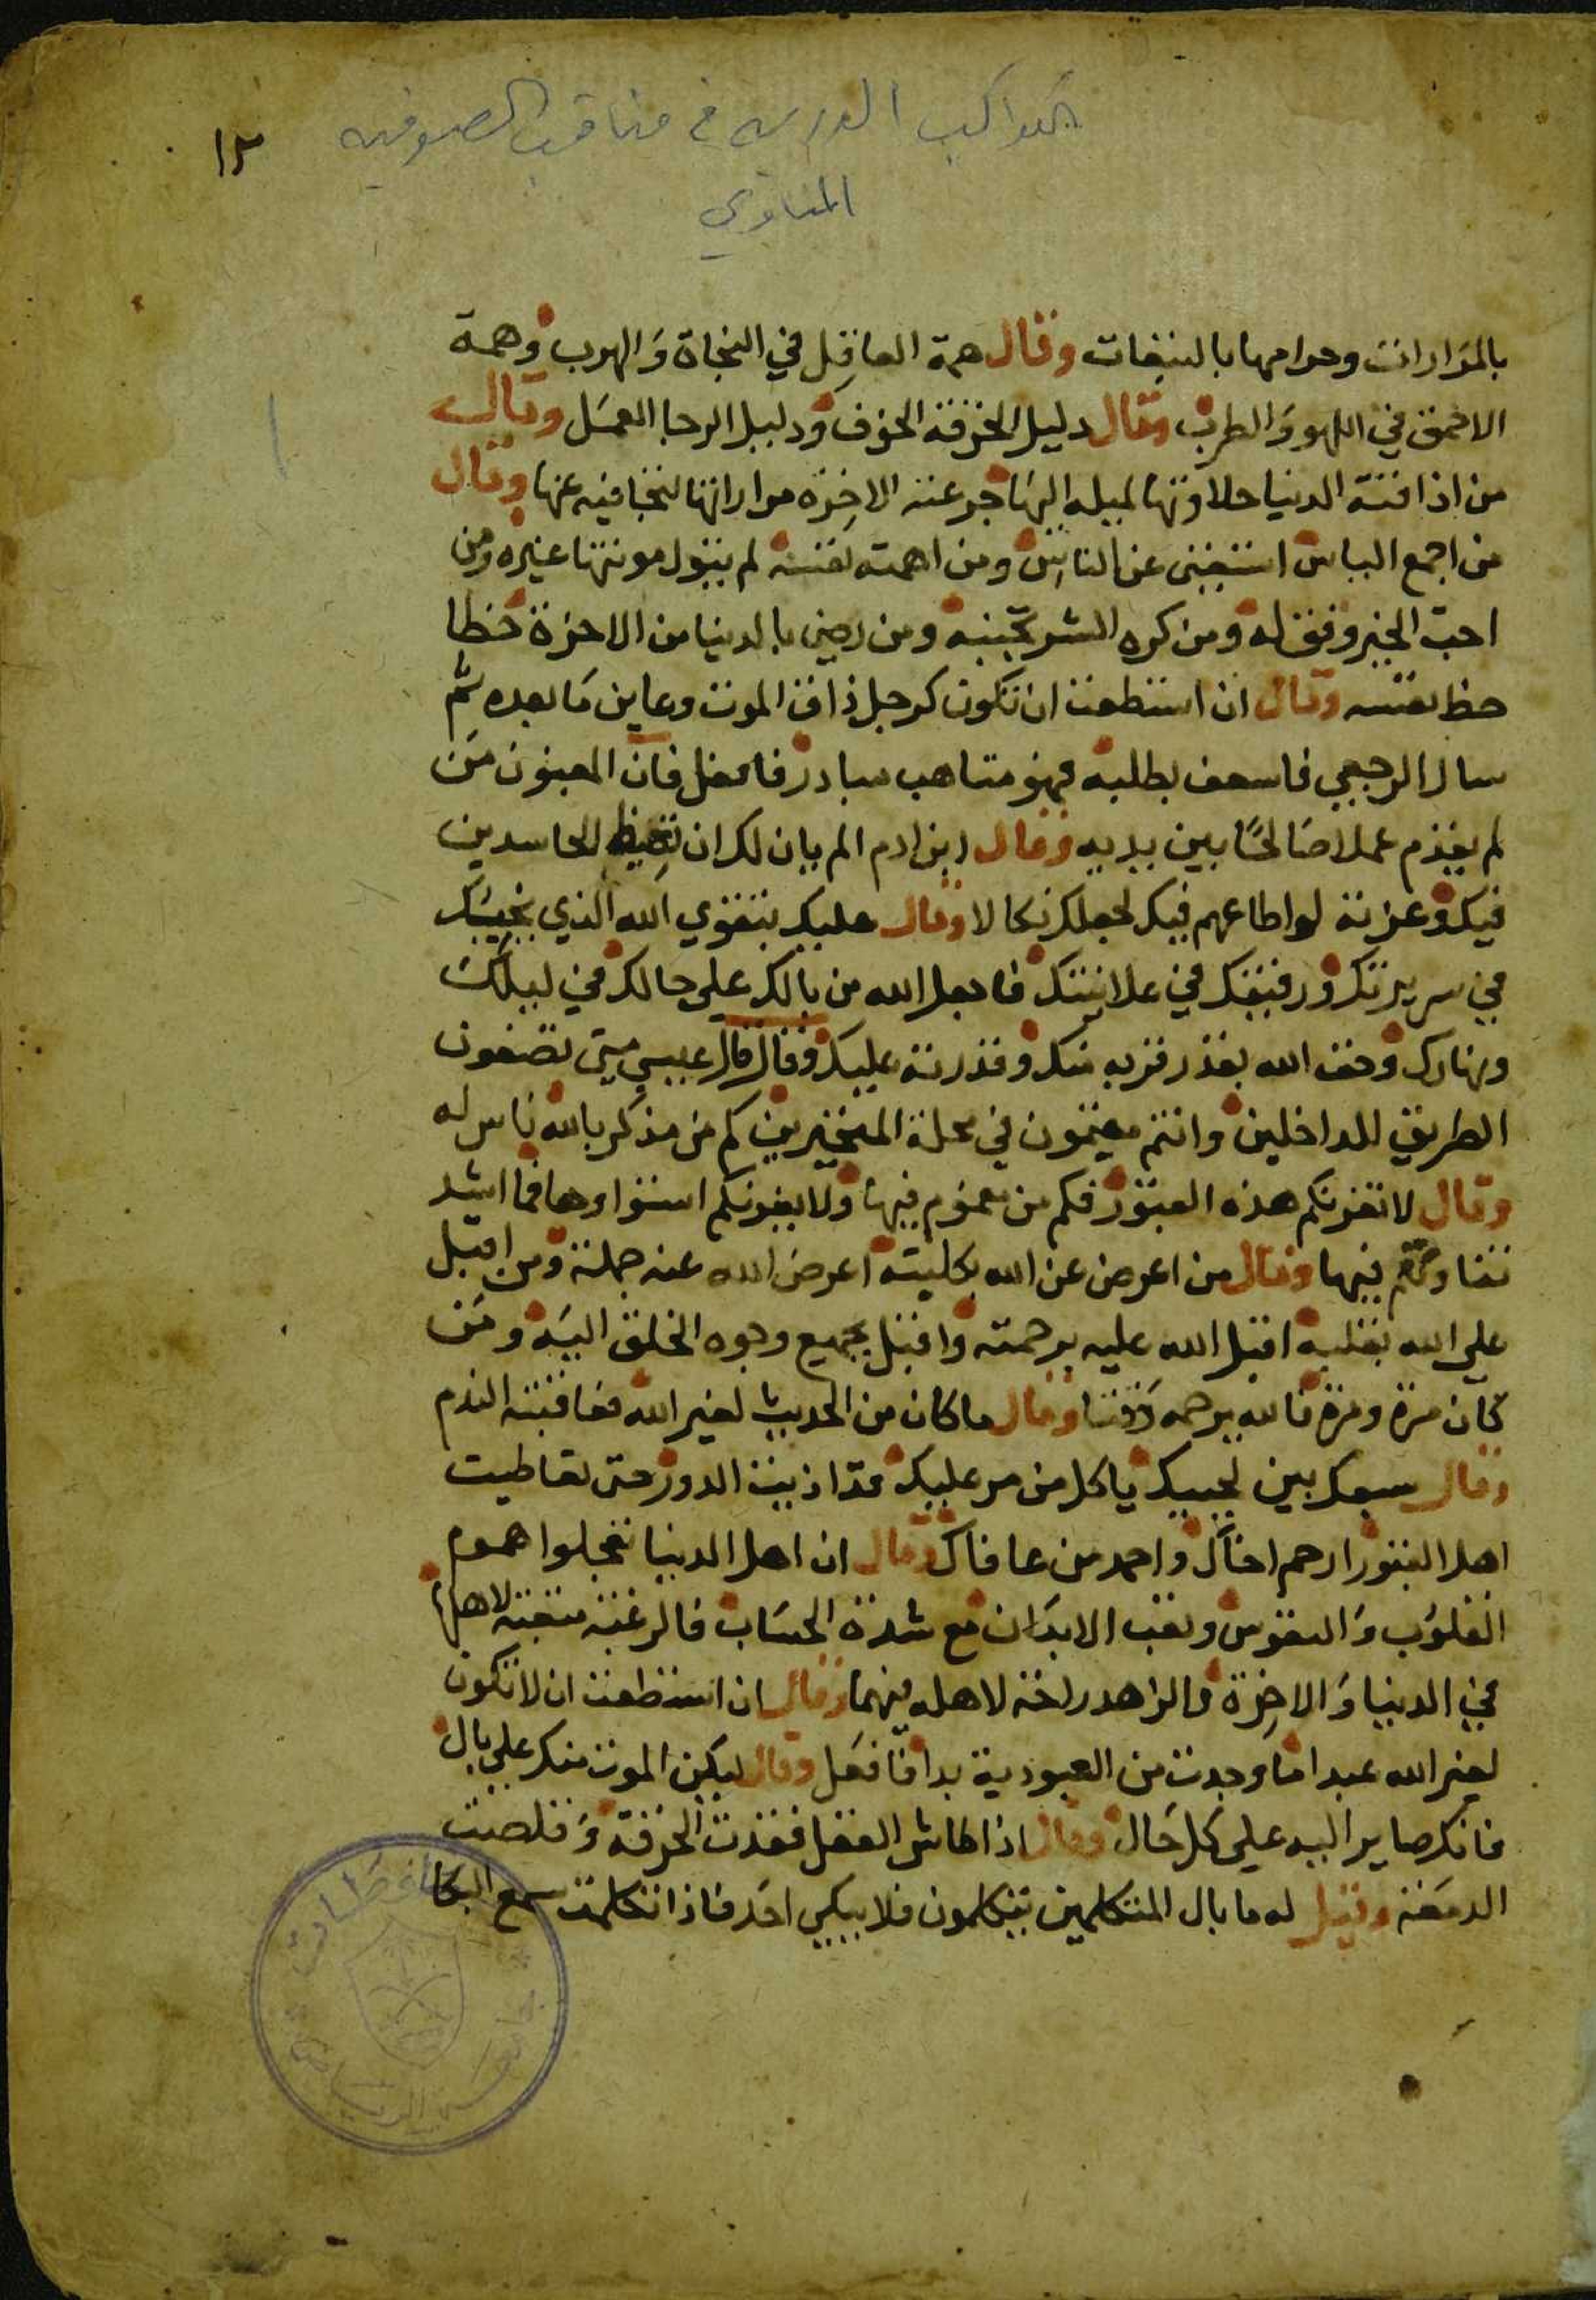 الكواكب الدرية في مناقب الصوفية
١٢
المناوي
بالمرارات وحرامها بالتبعات وقال همة العاقل في النجاة والهرب وهمة
الاحمق في اللهو والطرب وقال دليل الحرقة الخوف ودليل الرجا العمل وقال
من اذاقته الدنيا حلاوتها لميله اليها جرعته الاخرة مراراتها لتجافيه عنها وقال
من اجمع الياس استغنى عن الناس ومن اهمته نفسه لم يتول مونتها غيره ومن
احب الخير وفق له ومن كره الشر تجنبه ومن رضي بالدنيا من الاخرة حظا
حظ نفسه وقال ان استطعت ان تكون كرجل ذاق الموت وعاين ما بعده ثم
سال الرجعي فاسعف بطلبه فهو متاهب مبادر فافعل فان المغبون من
لم يقدم عملا صالحا بين يديه وقال ابن ادم الم يان لك ان تغيظ الحاسدين
فيك وعزته لو اطاعهم فيك لجعلك نكالا وقال عليك بتقوي الله الذي نجيك
في سريرتك ورقيبك في علانيتك فاجعل الله من بالك علي حالك في ليلك
ونهارك وخف الله بقدر قربه منك وقدرته عليك وقال قال عيسي متى تصفون
الطريق للداخلين وانتم مقيمون في محلة المتحيرين كم من مذكر بالله ناس له
وقال لا تغرنكم هذه القبور فكم من مغموم فيها ولا يغرنكم استواوها فما اشد
تفاوتكم فيها وقال من اعرض عن الله بكليته اعرض الله عنه جملة ومن اقبل
علي الله بقلبه اقبل الله عليه برحمته واقبل بجميع وجوه الخلق اليه ومن
كان مرة ومرة فالله يرحمه وقتا وقال ما كان من الحديث لغير الله فعاقبته الندم
وقال سبعك بين لحييك ياكل من مر عليك قد اذيت الدور حتى تعاطيت
اهل القبور ارحم اخاك واحمد من عافاك وقال ان اهل الدنيا تعجلوا هموم
القلوب والنفوس وتعب الابدان مع شدة الحساب فالرغبة متعبة لاهلها
في الدنيا والاخرة والزهد راحة لاهله فيهما وقال ان استطعت ان لا تكون
لغير الله عبدا ما وجدت من العبودية بدا فافعل وقال ليكن الموت منك علي بال
فانك صاير اليه علي كل حال وقال اذا طاش العقل فقدت الحرقة وقلصت
الدمعة وقيل له ما بال المتكلمين يتكلمون فلا يبكي احد فاذا تكلمت سمع البكا
جامعة الرياض